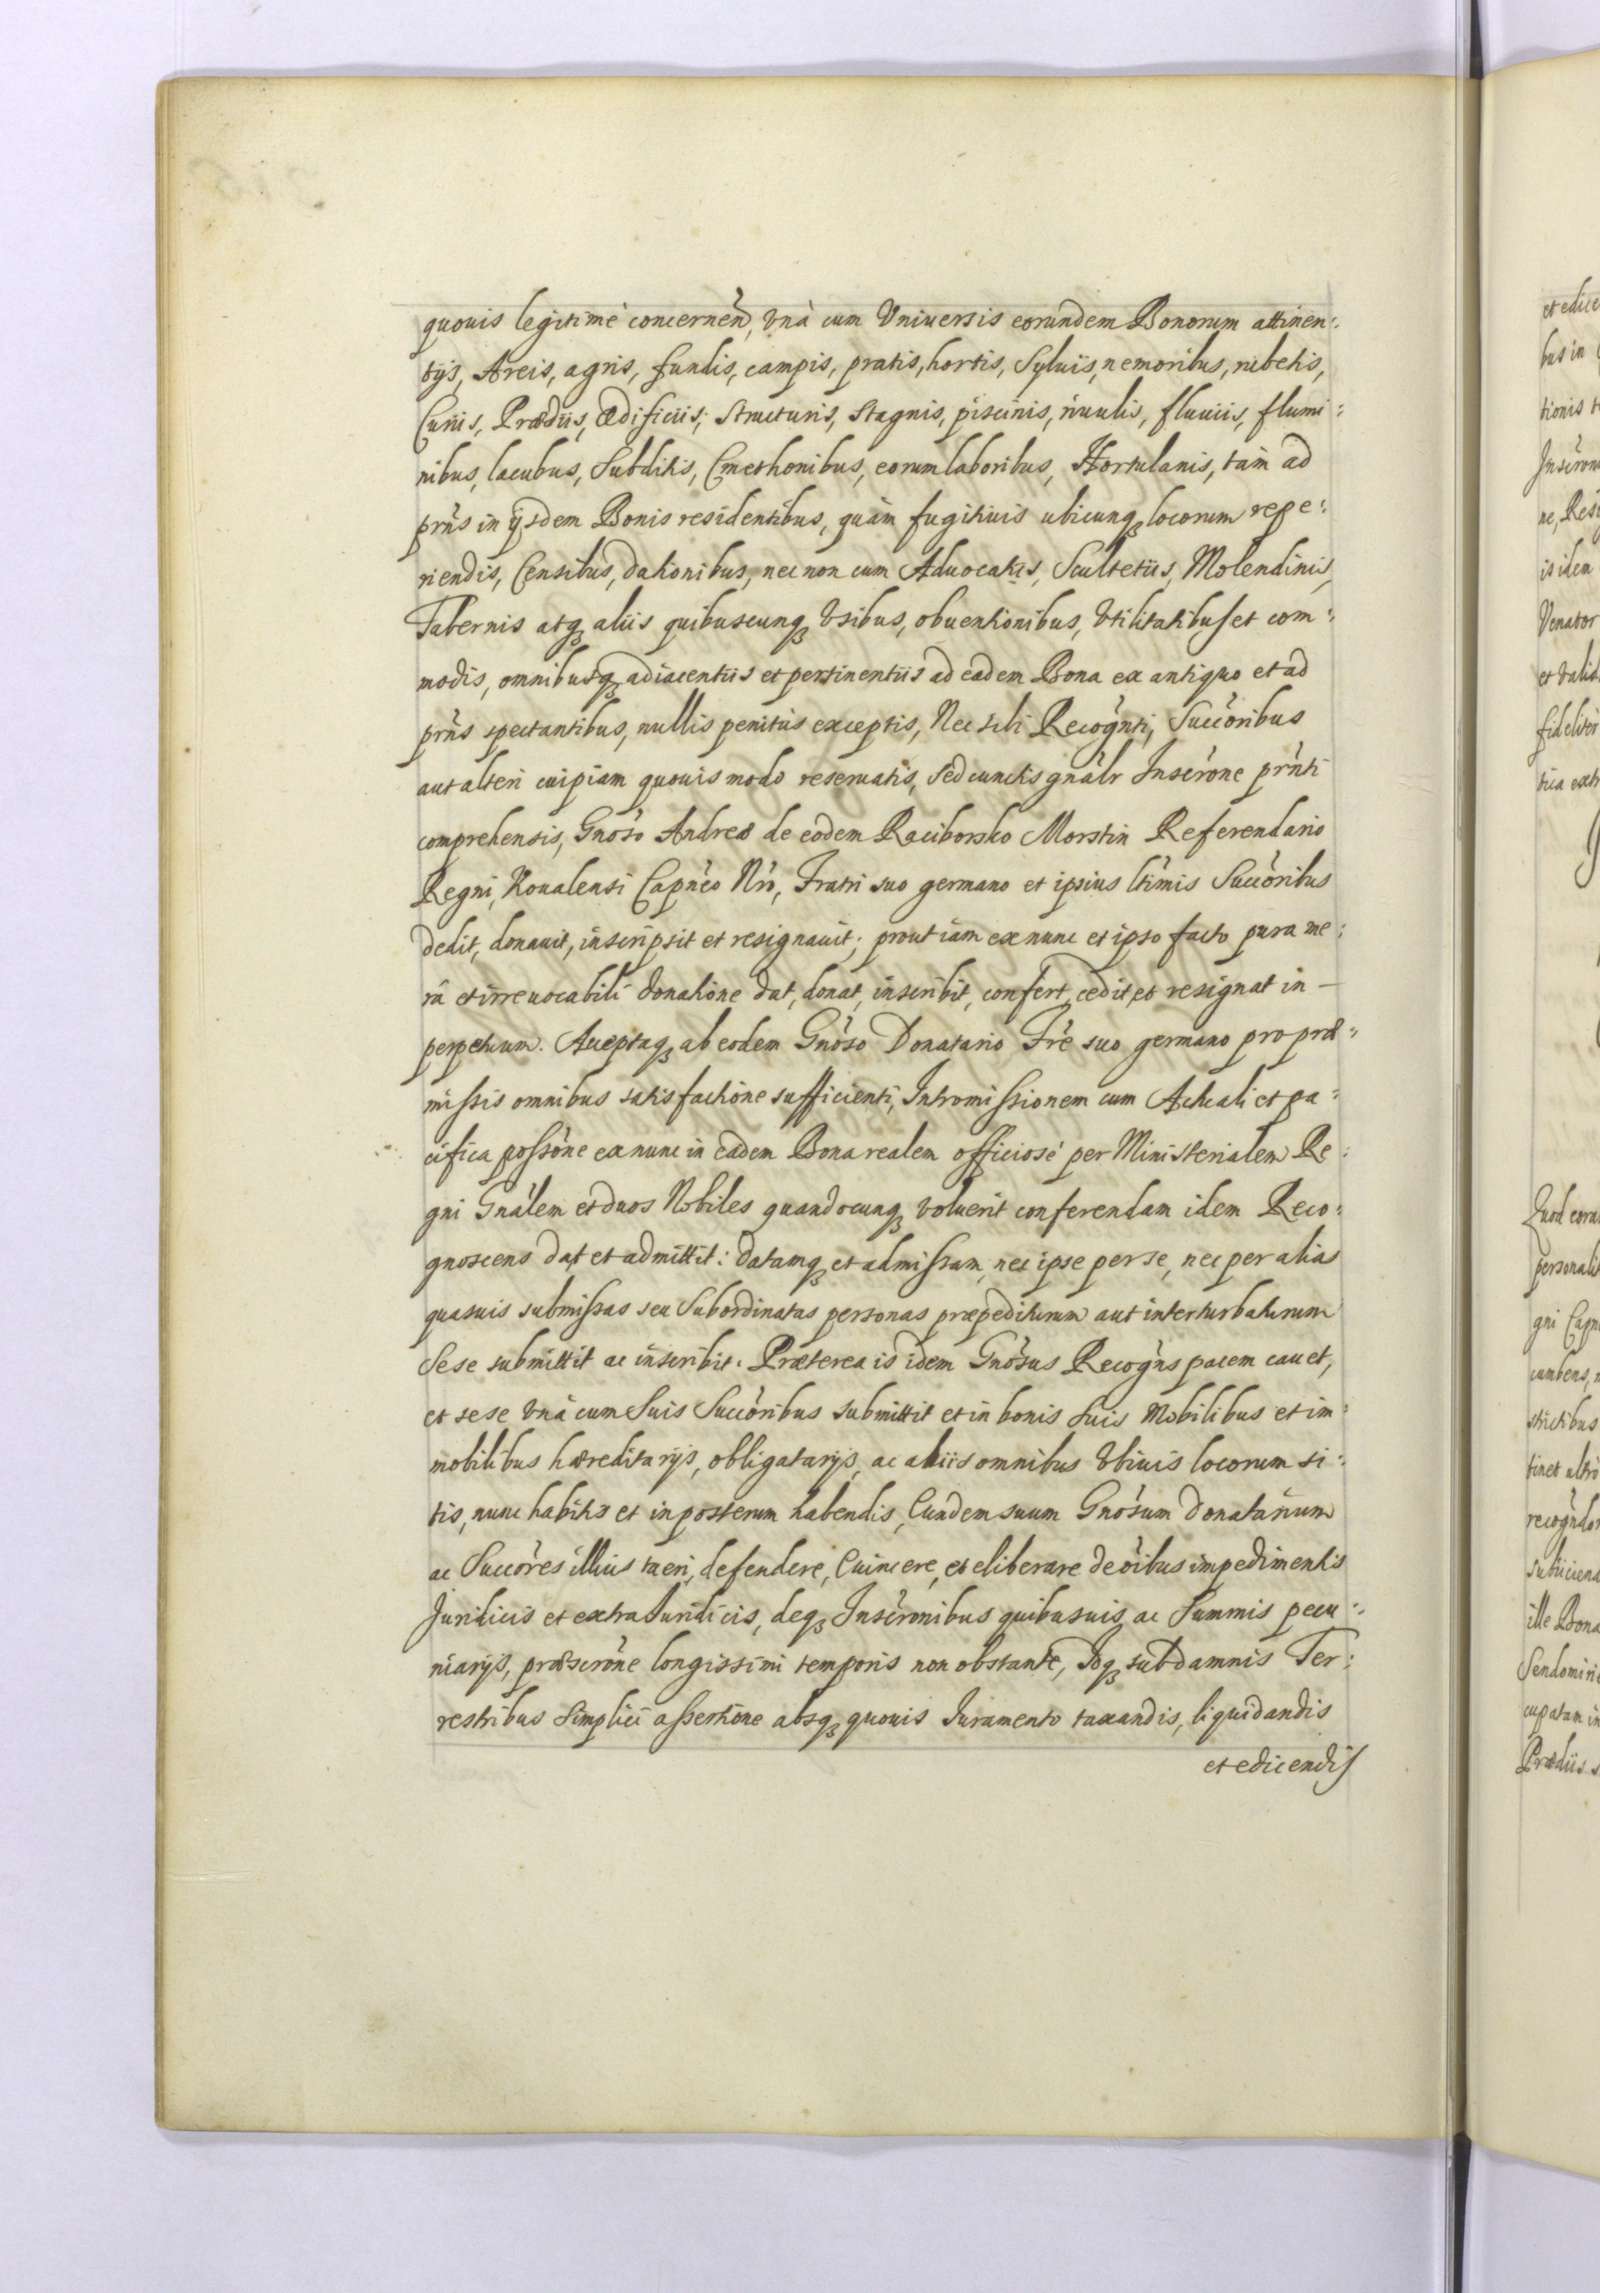 quouis legitimè concerneñ, Vnà cum Vniuersis eorundem Bonorum attinen:
tijs, Areis, agris, fundis, campis, pratis, hortis, Syluis, nemoribus, rubetis,
Curiis, Prædiis, ædificiis, structuris, stagnis, piscinis, riuulis, fluuiis, flumi:
nibus, lacubus, Subditis, Cmethonibus, eorum laboribus, Hortulanis, tàm ad
prñs in ijsdem Bonis residentibus, quàm fugitiuis ubicunqꝫ locorum repe:
riendis, Censibus, dationibus, nec non cum Aduocatiis, Scultetiis, Molendinis,
Tabernis atqꝫ aliis quibuscunqꝫ Vsibus, obuentionibus, Vtilitatibus et com:
modis, omnibusqꝫ adiacentiis et pertinentiis ad eadem Bona ex antiquo et ad
prñs spectantibus, nullis penitùs exceptis, Nec sibi Recogñti, Succõribus
aut alteri cuipiam quouis modo reseruatis, sed cunctis gnãlr Inscrõne prñti
comprehensis, Gnõso Andreæ de eodem Raciborsko Morstin Referendario
Regni, Koualensi Capñeo Nrõ, Fratri suo germano et ipsius ltĩmis Succõribus
dedit, donauit, inscripsit et resignauit; prout iam ex nunc et ipso facto pura me:
râ et irreuocabili donatione dat, donat, inscribit, confert, cedit, et resignat in —
perpetuum. Acceptaqꝫ ab eodem Gnõso Donatario Frẽ suo germano pro præ:
missis omnibus satisfactione sufficienti, Intromissionem cum Actuali et pa:
cifica possõne ex nunc in eadem Bona realem officiosè per Ministerialem Re:
gni Gnãlem et duos Nobiles quandocunqꝫ voluerit conferendam idem Reco:
gnoscens dat et admittit: datamqꝫ et admissam, nec ipse per se, nec per alias
quasuis submissas seu Subordinatas personas præpediturum aut interturbaturum
Sese submittit ac inscribit. Præterea is idem Gnõsus Recogñs pacem cauet,
et sese Vnà cum Suis Succõribus submittit et in bonis suis Mobilibus et im:
mobilibus hæreditarijs, obligatarijs, ac aliis omnibus Vbiuis locorum si:
tis, nunc habitis et in posterum habendis, Eundem suum Gnõsum Donatarium
ac Succõres illius tueri, defendere, Euincere, et eliberare de oĩbus impedimentis
Juridicis et extra Juridicis, deqꝫ Inscrõnibus quibusuis ac Summis pecu:
niarijs, præscrõne longissimi temporis non obstante, Idqꝫ sub damnis Ter:
restribus Simplici assertione absqꝫ quouis Iuramento taxandis, liquidandis
et edicendis